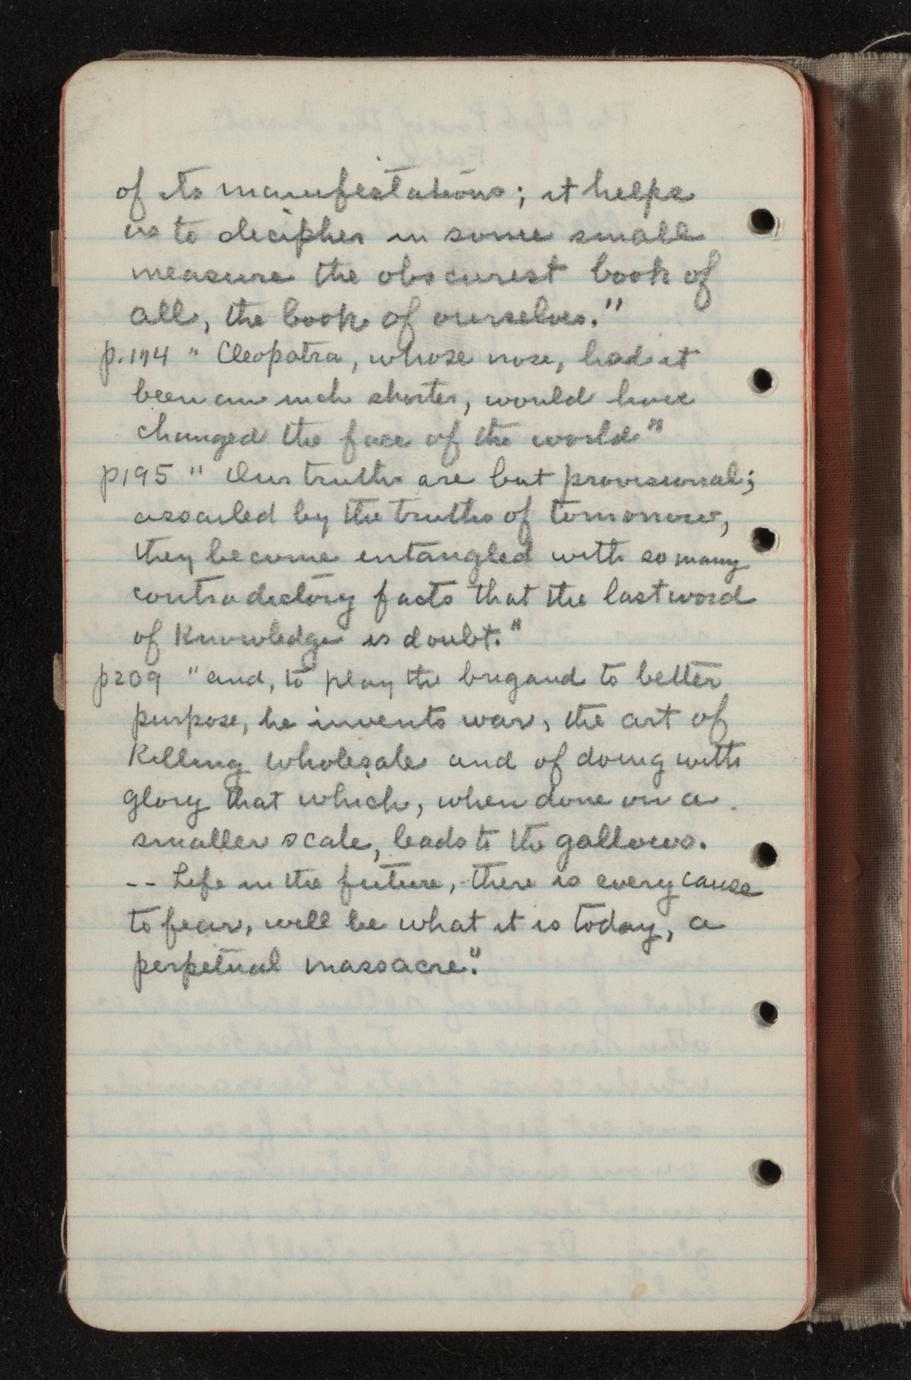 of its manifestations; it helps
us to decipher in some small
measure the obscurest book of
all, the book of ourselves."
p.194 " Cleopatra, whose nose, had it
been an inch shorter, would have
changed the face of the world"
p195 " Our truths are but provisional;
assailed by the truths of tomorrow,
they become entangled with so many
contradictory facts that the last word
of Knowledge is doubt."
p209 "and, to play the brigand to better
purpose, he invents war, the art of
Killing wholesale and of doing with
glory that which, when done on a
smaller scale, leads to the gallows.
-- Life in the future, there is every cause
to fear, will be what it is today, a
perpetual massacre."